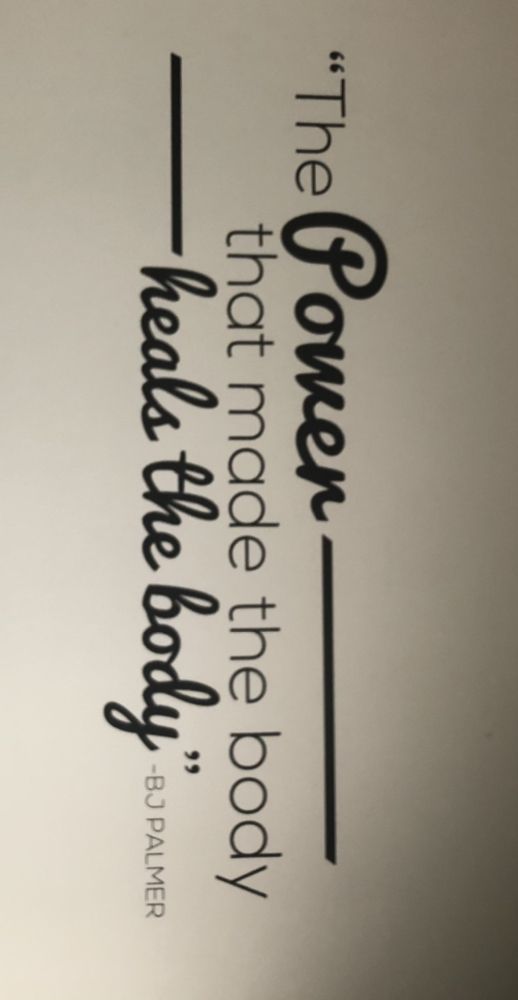 “The Power
that made the body
heals the body”
-BJ PALMER